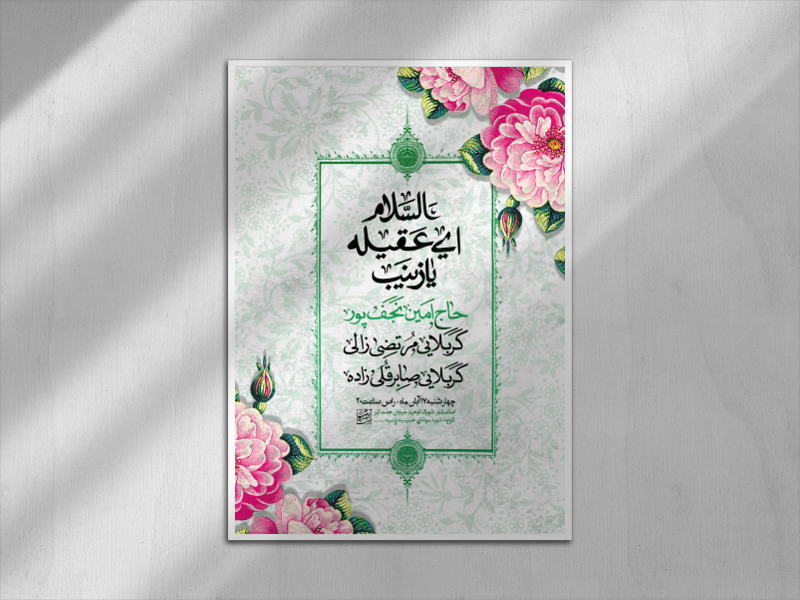 السلام
ای عقیله
یا زینب
حاج امین نجف پور
کربلایی مرتضی زالی
کربلایی صابر قلی زاده
چهارشنبه ۱۷ آبان ماه، راس ساعت ۲۰